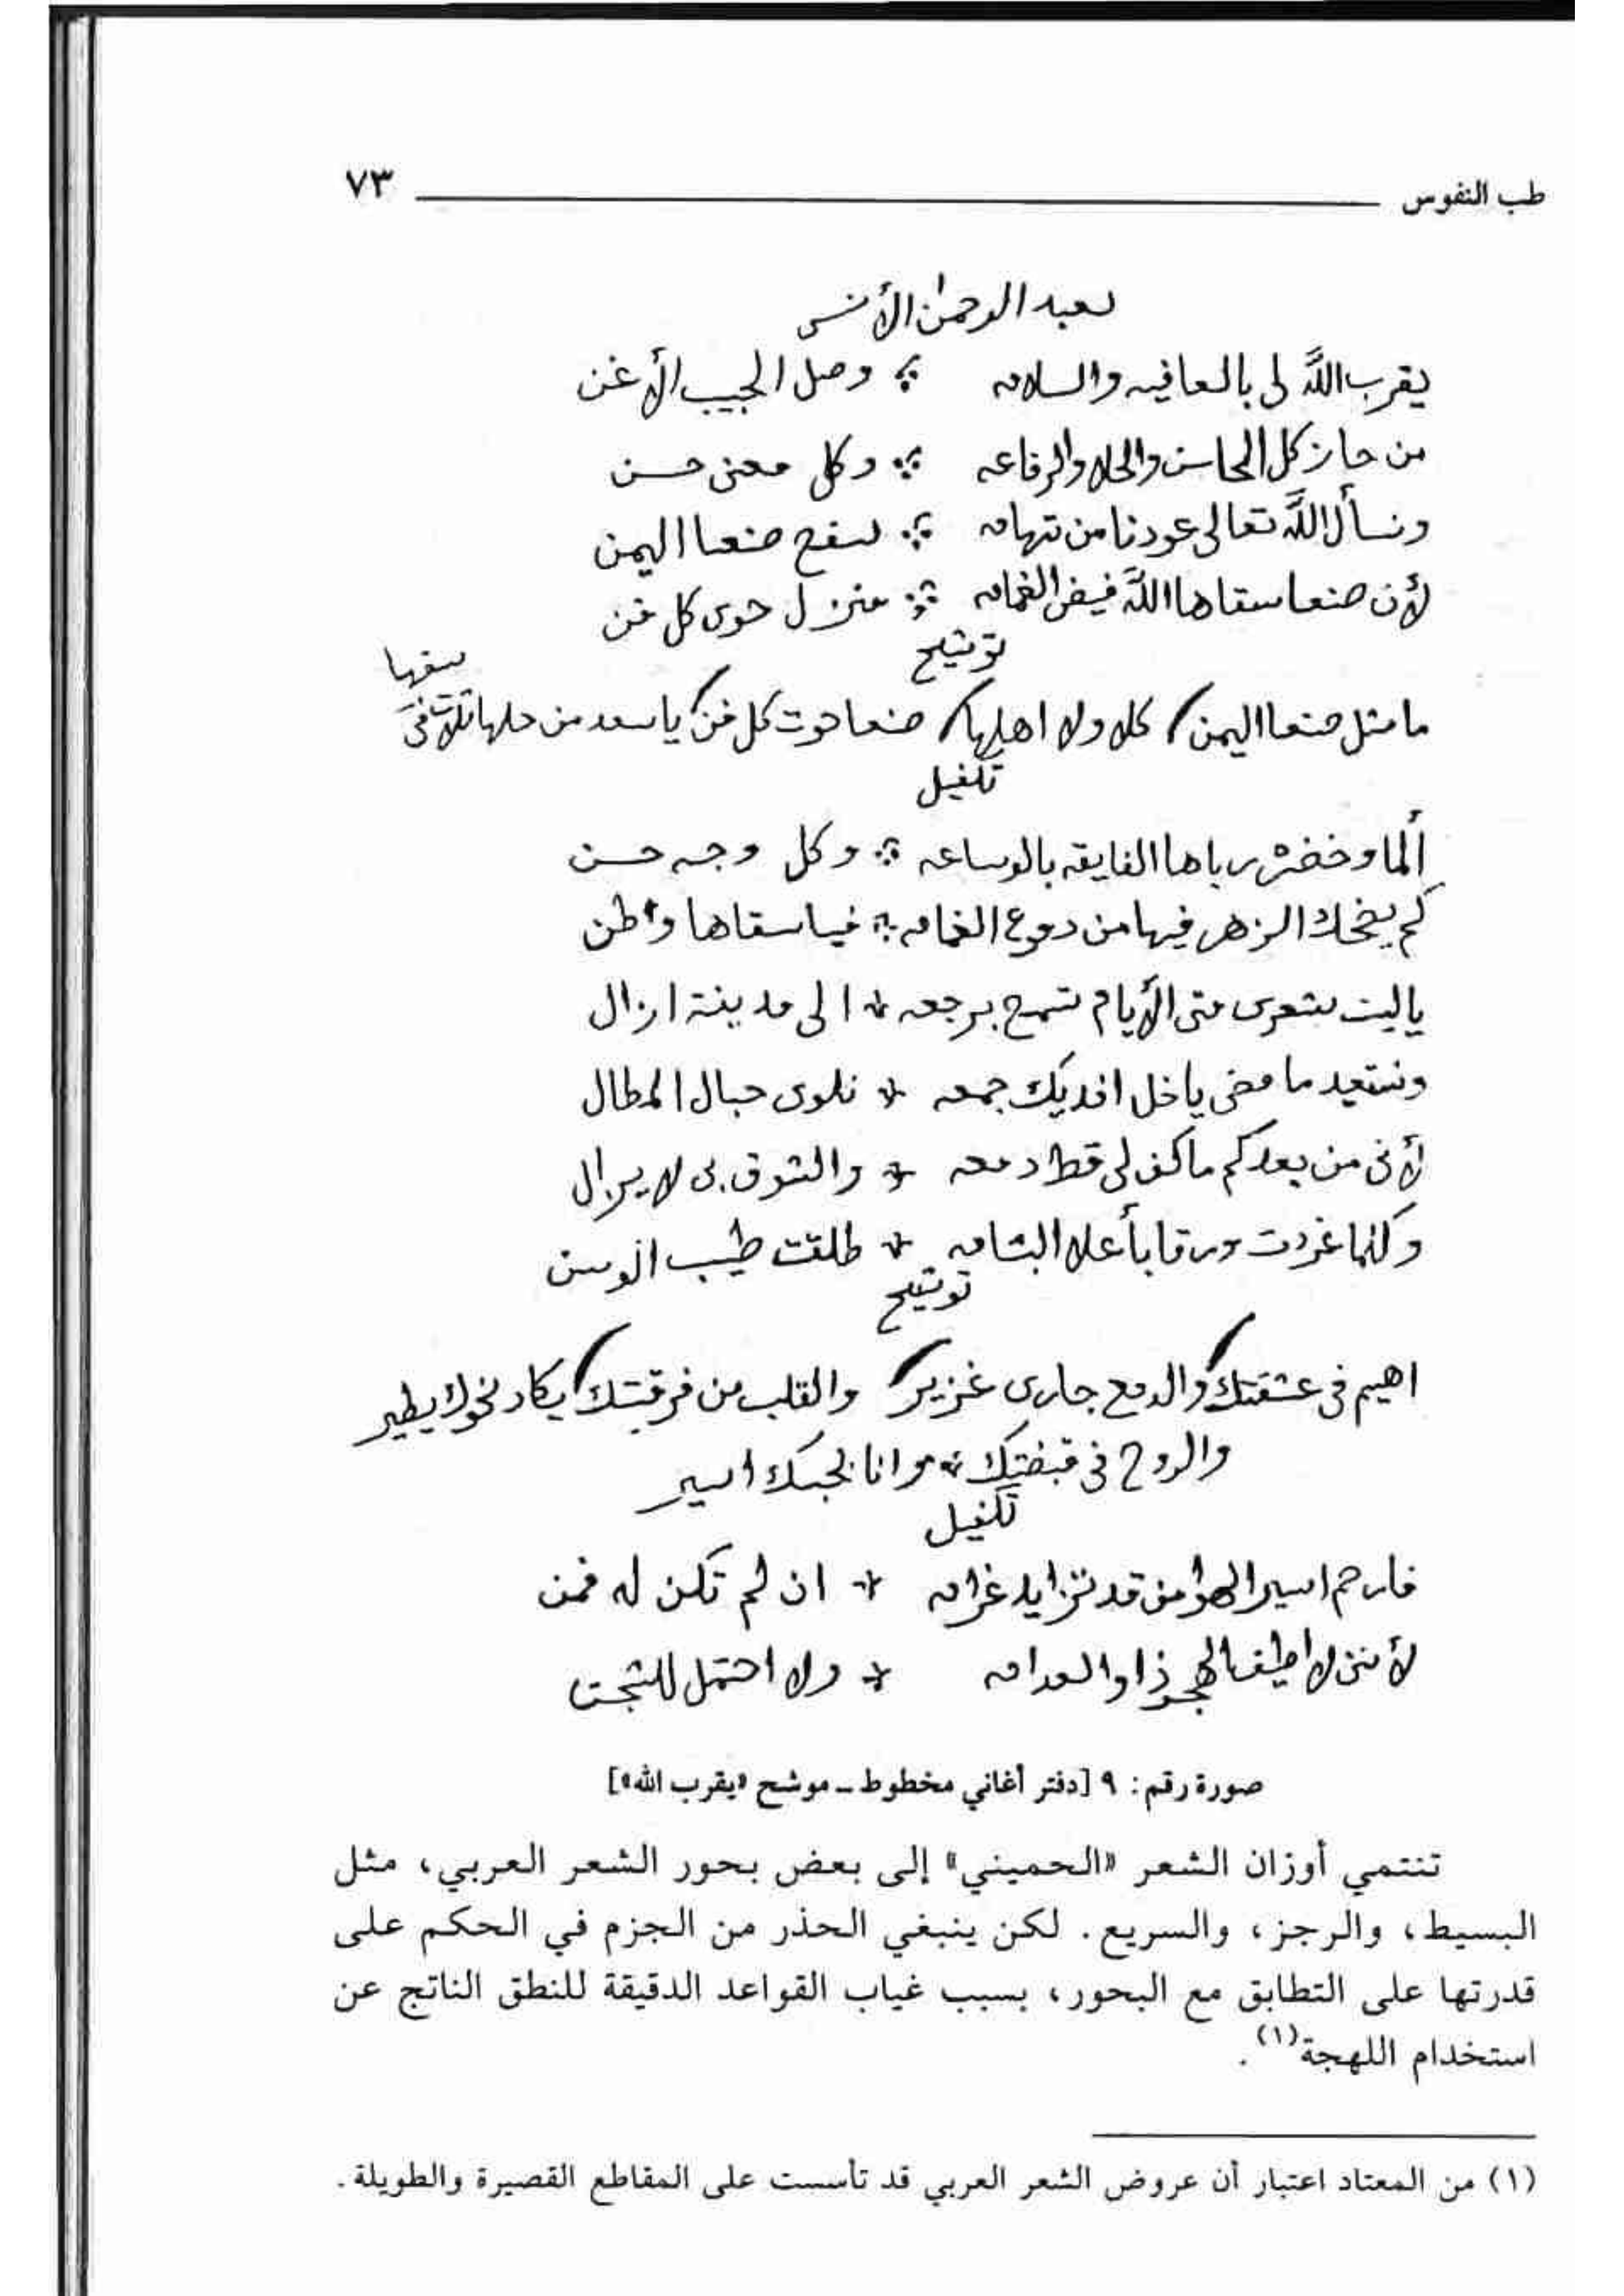 طب النفوس ٧٣
لعبد الرحمن الأنسي
يقرب اللَّه لى بالعافيه والسلامه ؞ وصل الحبيب الأغن
من حاز كل المحاسن والحلا والرفاعه ؞ وكل معنى حسن
ونسأل اللَّه تعالى عودنا من تهامه ؞ لسفح صنعا اليمن
لأن صنعا سقاها اللَّه فيض الغمامه ؞ منزل حوى كل فن
توشيح
ما مثل صنعا اليمن / كلا ولا اهلها / صنعا حوت كل فن / يا سعد من حلها ثلاث فى سفحها
تقفيل
ألما وخضرة رباها الفايقه بالوساعه ؞ وكل وجه حسن
كم يضحك الزهر فيها من دموع الغمامه ؞ فيا سقاها وطن
ياليت شعرى متى الأيام تسمح برجعه * الى مدينة ازال
ونستعيد ما مضى ياخل افديك جمعه * نلوى حبال المطال
لأنى من بعدكم ما كف لى قط دمعه * والشوق بى لا يزال
وكلما غردت ورقا بأعلا البشامه * طلقت طيب الوسن
توشيح
اهيم فى عشقتك / والدمع جارى غزير / والقلب من فرقتك / يكاد نحوك يطير
والروح فى قبضتك * وانا بحبك اسير
تقفيل
فارحم اسير الهوا من قد تزايد غرامه * ان لم تكن له فمن
لأننى لا اطيق الهجر ذا والعدامه * ولا احتمل للشجن
صورة رقم: ٩ [دفتر أغاني مخطوط ـ موشح «يقرب الله»]
تنتمي أوزان الشعر «الحميني» إلى بعض بحور الشعر العربي، مثل
البسيط، والرجز، والسريع. لكن ينبغي الحذر من الجزم في الحكم على
قدرتها على التطابق مع البحور، بسبب غياب القواعد الدقيقة للنطق الناتج عن
استخدام اللهجة(١).
(١) من المعتاد اعتبار أن عروض الشعر العربي قد تأسست على المقاطع القصيرة والطويلة.